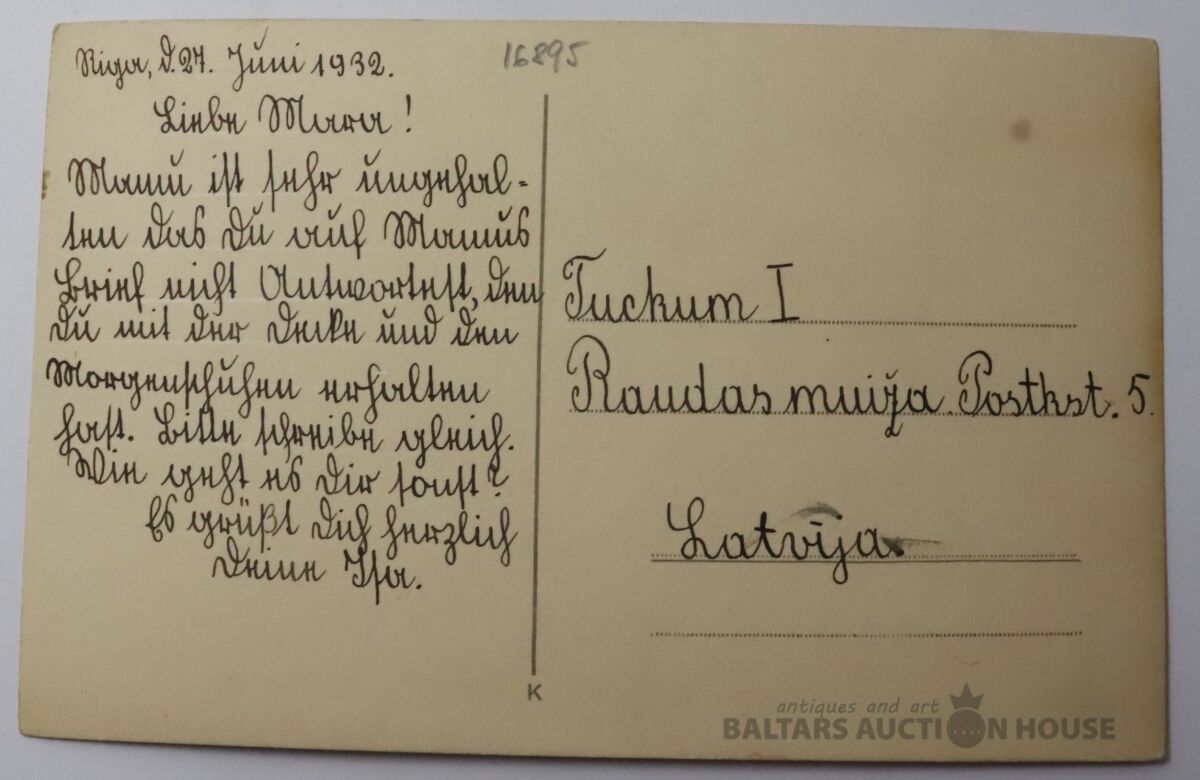 Riga, d. 27. Juni 1932.
16895
Liebe Mara!
Mamu ist sehr ungehal-
ten das Du auf Mamus
Brief nicht Antwortest, den
Du mit der Decke und den
Morgenschuhen erhalten
hast. Bitte schreibe gleich.
Wie geht es Dir sonst?
Es grüßt Dich herzlich
Deine Isa.
Tuckum I
Raudas muiža. Postkst. 5.
Latvija.
K
antiques and art
BALTARS AUCTION HOUSE